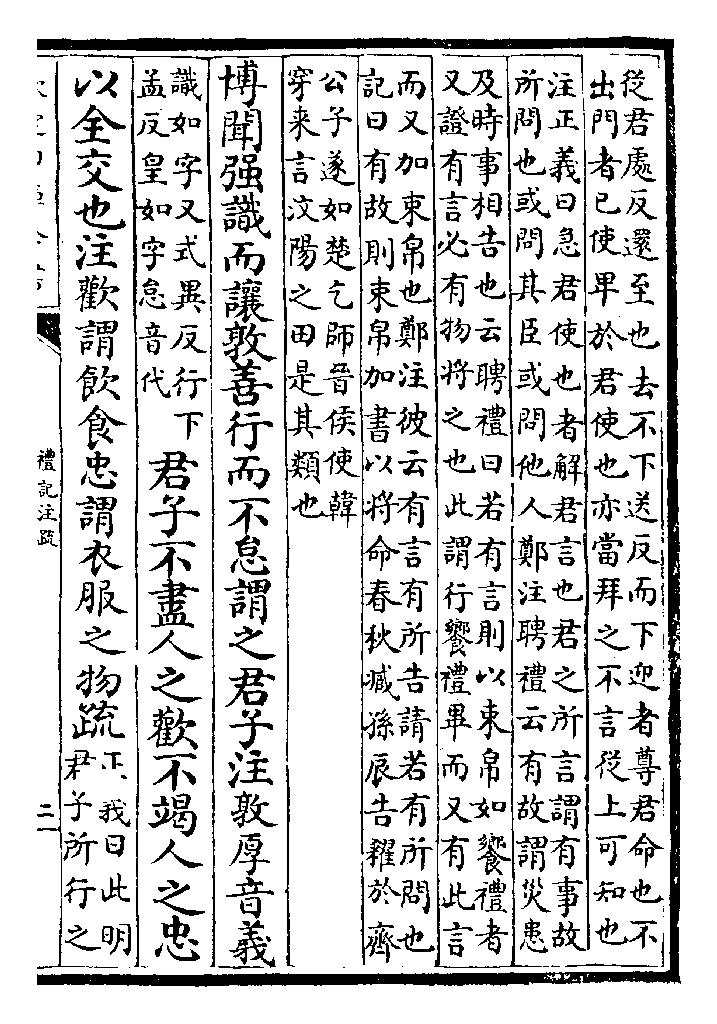 從君處反還至也去不下送反而下迎者尊君命也不
出門者已使畢於君使也亦當拜之不言從上可知也
注正義曰急君使也者解君言也君之所言謂有事故
所問也或問其臣或問他人鄭注聘禮云有故謂災患
及時事相告也云聘禮曰若有言則以束帛如饗禮者
又證有言必有物將之也此謂行饗禮畢而又有此言
而又加束帛也鄭注彼云有言有所告請若有所問也
記曰有故則束帛加書以將命春秋臧孫辰告糴於齊
公子遂如楚乞師晉侯使韓
穿来言汶陽之田是其類也
博聞强識而讓敦善行而不怠謂之君子注敦厚音義
識如字又式異反行下
孟反皇如字怠音代
君子不盡人之歡不竭人之忠
以全交也注歡謂飲食忠謂衣服之物疏
正義曰此明
君子所行之
禮記注疏
二